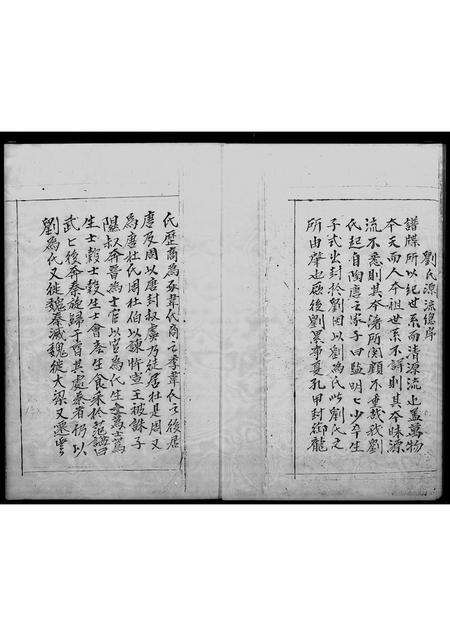 劉氏源流總序
譜牒所以紀世系而清源流也蓋萬物
本天而人本祖世系不詳則其本昧源
流不悉則其本淆所関顧不重哉我劉
氏起自陶唐之
子式出封於劉因以劉為氏此劉氏之
所由肇也厥後劉累事夏孔甲封御龍
氏歷商為豕韋氏商之季韋氏之後居
唐及周以唐封叔虞乃徙居杜是周又
為唐杜氏周杜伯以諫忤宣王被誅子
隰叔奔晉為士官以官為氏生士蒍蒍
生士穀士穀生士會會生食采於范
武亡後奔秦旋歸于晋其處秦者仍以
劉為氏又徙魏秦滅魏徙大梁又遷豐